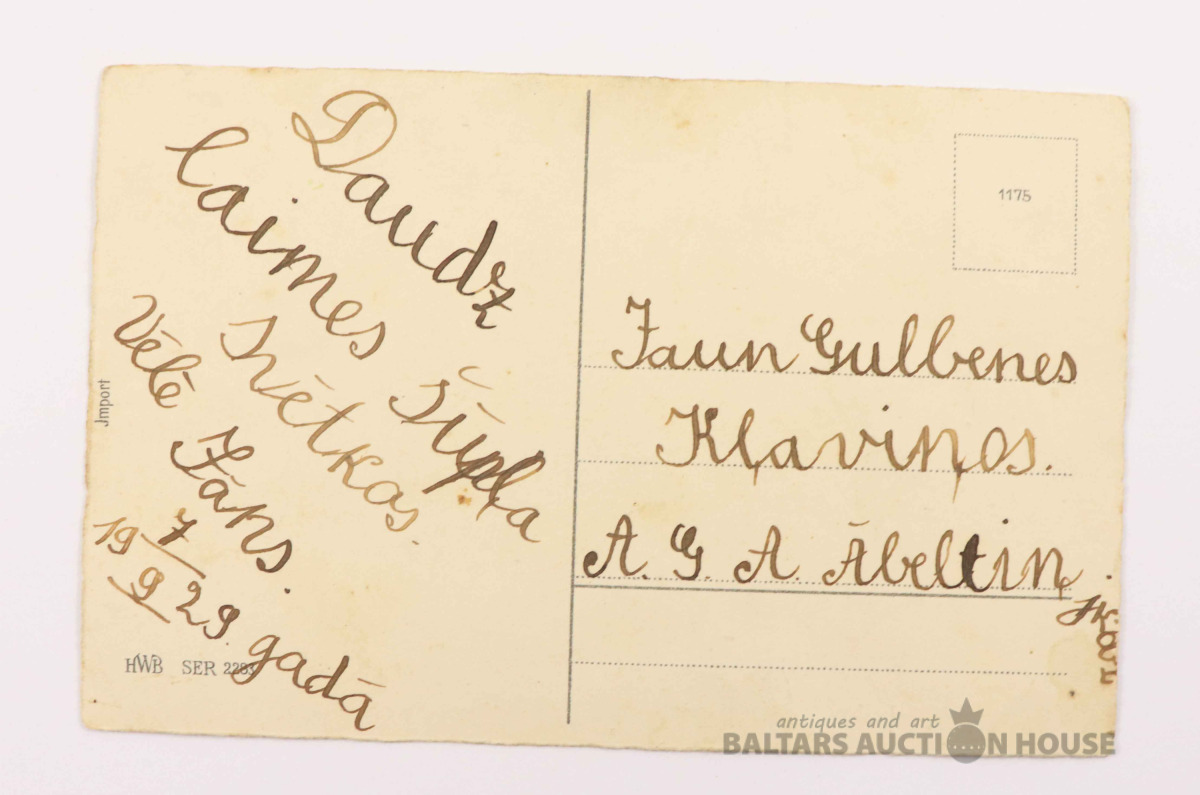 Daudz
laimes Šūpļa
svētkos.
Vēlē Jāns.
19 7/9 29 gadā
Import
HWB SER 2283
1175
Jaun Gulbenes
Kļaviņos.
A. G. A. Ābeltiņ
antiques and art
BALTARS AUCTION HOUSE